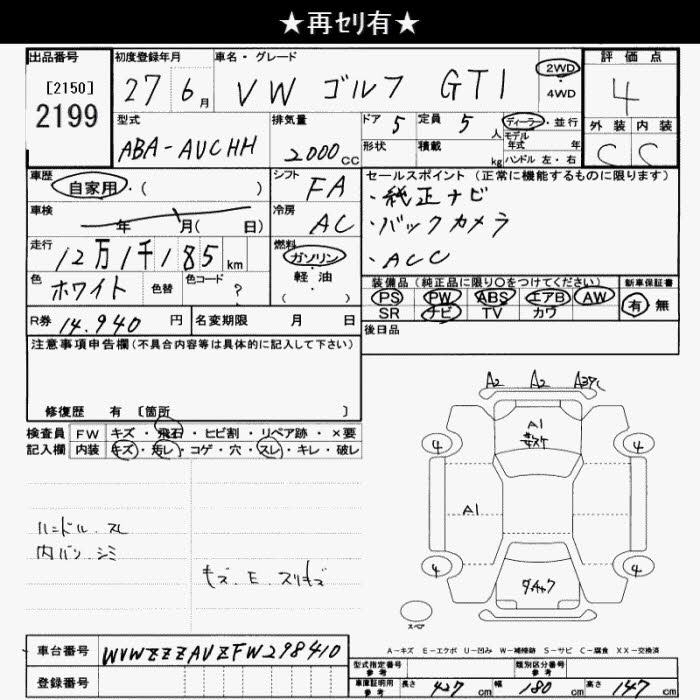 ★再セリ有★
出品番号
[2150]
2199
初度登録年月
27 6月
車名・グレード
VW ゴルフ GTI
2WD
・
4WD
評価点
4
型式
ABA-AUCHH
排気量
2000cc
ドア 5
定員 5人
形状
積載 kg
ディーラー・並行
モデル年式 年
ハンドル 左・右
外装 内装
C C
車歴
自家用・( )
シフト FA
車検
年 月( 日)
冷房 AC
走行
12万1千185km
燃料
ガソリン
軽・油
( )
色
ホワイト
色替
色コード ?
R券 14.940 円
名変期限 月 日
セールスポイント(正常に機能するものに限ります)
・純正ナビ
・バックカメラ
・ACC
装備品(純正品に限り〇をつけてください)
PS PW ABS エアB AW
SR ナビ TV カワ
新車保証書
有 無
後日品
注意事項申告欄(不具合内容等は具体的に記入して下さい)
修復歴 有 [箇所 ]
検査員
記入欄
FW キズ・飛石・ヒビ割・リペア跡・×要
内装 キズ・汚レ・コゲ・穴・スレ・キレ・破レ
ハンドル スレ
内バン シミ
キズ E スリキズ
A2 A2
A1
A1
4 4
4 4
スペア
A-キズ E-エクボ U-凹み W-補修跡 S-サビ C-腐食 XX-交換済
車台番号 WVWZZZAUZFW298410
登録番号
型式指定番号
参考
類別区分番号
参考
車庫証明用
参考
長さ 427cm 幅 180cm 高さ 147cm